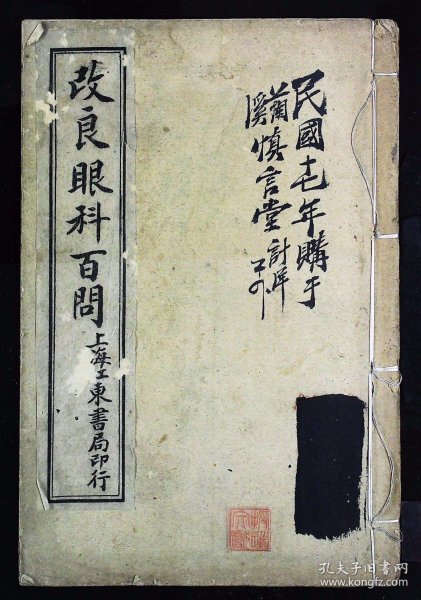 改良眼科百問
上海江東書局印行
民國十七年購于
蘭溪慎言堂計洋
孔夫子旧书网
www.kongfz.com